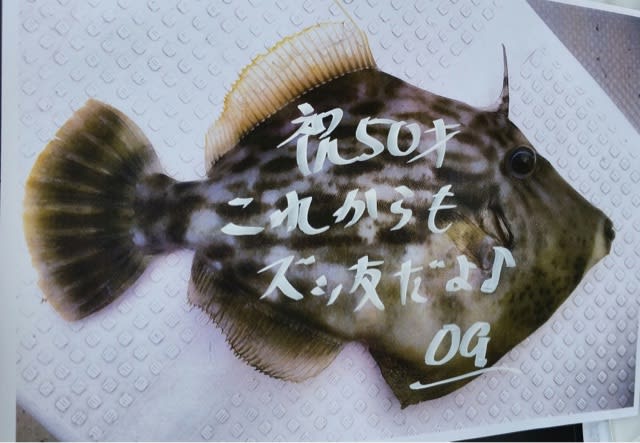 祝50才
これからも
ズッ友だよ♪
OG